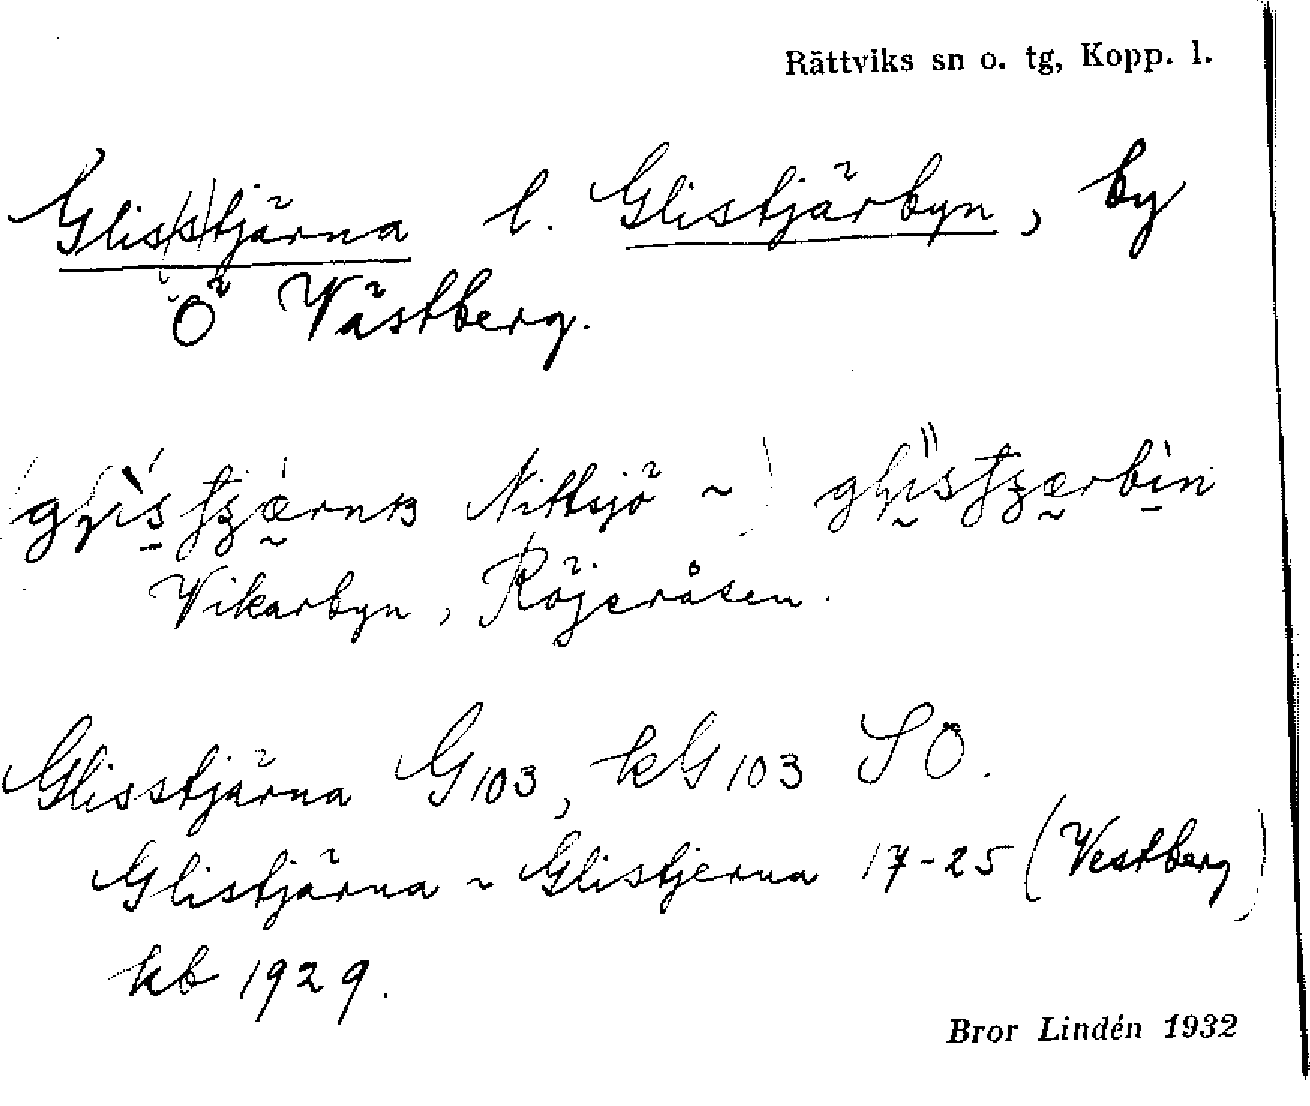 Rättviks sn o. tg, Kopp. l.
Glisstjärna l. Glistjärbyn, by
Ö Västberg.
Nittsjö ~
Vikarbyn, Röjeråsen.
Glisstjärna G103, kG103 SO.
Glistjärna ~ Glistjerna 17-25 (Vestberg)
kb 1929.
Bror Lindén 1932